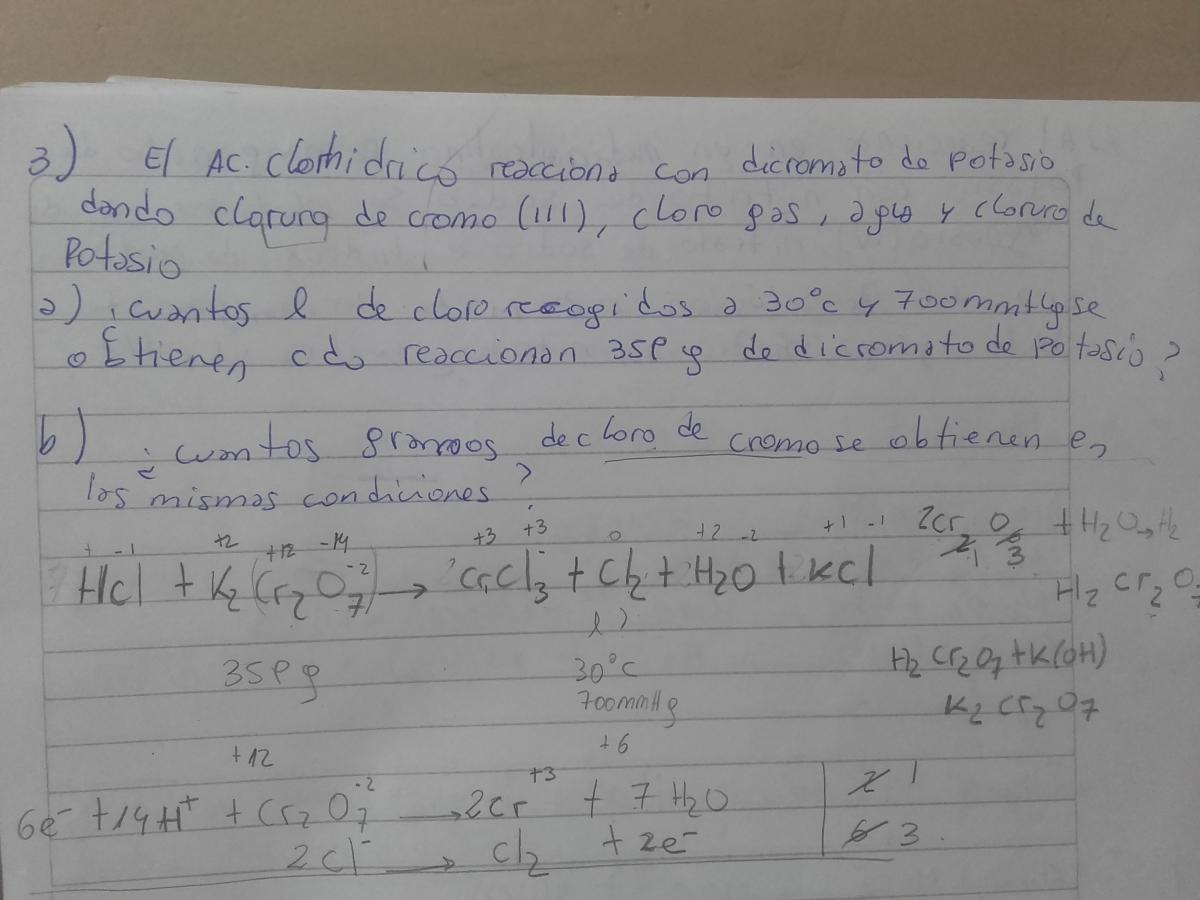 3) El Ac. Clorhidrico reacciona con dicromato de potasio
dando clorura de cromo (III), cloro gas, agua y cloruro de
Potasio
a) ¿cuantos l de cloro recogidos a 30°c y 700mmHg se
obtienen cdo reaccionan 358 g de dicromato de potasio?
b) ¿cuantos gramos de cloro de cromo se obtienen en
las mismas condiciones?
+ -1 +2 +12 -14 +3 +3 - 0 +2 -2 +1 -1 2Cr2 O6 + H2O → H2
1 3
HCl + K2(Cr2O7-2) → CrCl3 + Cl2 + H2O + KCl H2 Cr2 O7
l)
358 g 30°C H2Cr2O7 + K(OH)
700mmHg K2Cr2O7
+12 +6
6e- + 14H+ + Cr2O7-2 → 2Cr+3 + 7H2O 2 1
2Cl- → Cl2 + 2e- 6 3.